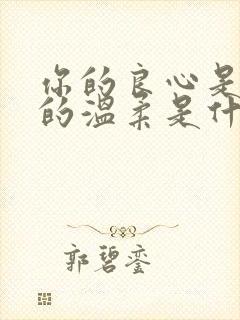 你的良心是
的温柔是什
郭碧銮